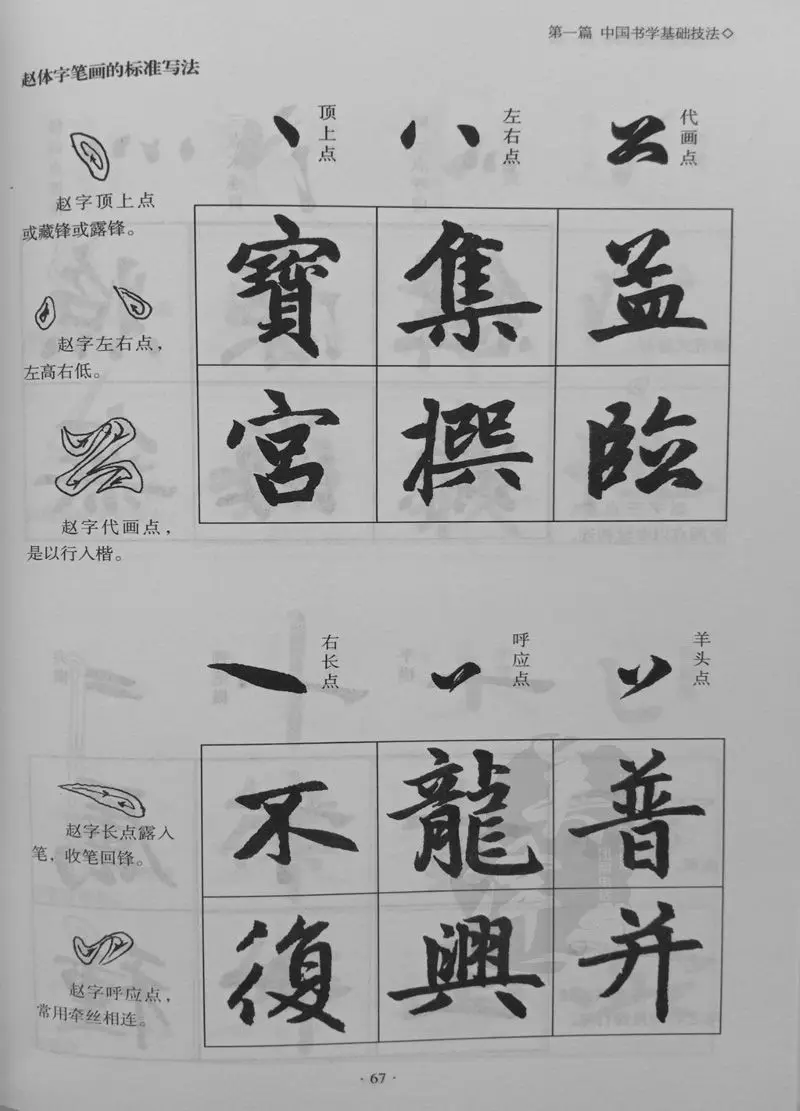 第一篇 中国书学基础技法◇
赵体字笔画的标准写法
顶上点
左右点
代画点
赵字顶上点
或藏锋或露锋。
赵字左右点，
左高右低。
赵字代画点，
是以行入楷。
寶 集 益
宮 撰 臨
右长点
呼应点
羊头点
赵字长点露入
笔，收笔回锋。
赵字呼应点，
常用牵丝相连。
不 龍 普
復 興 并
· 67 ·